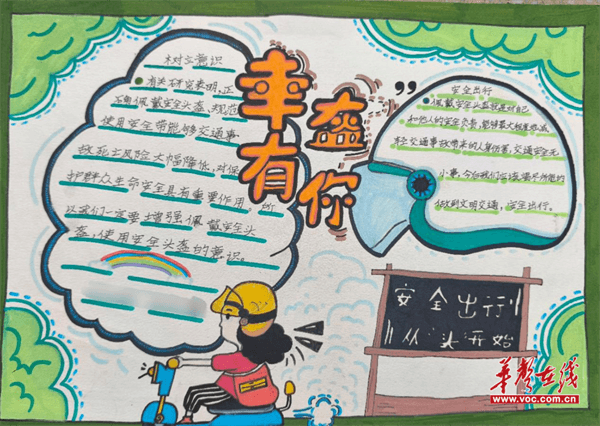 树立意识
有关研究表明,正
确佩戴安全头盔、规范
使用安全带能够将交通事
故死亡风险大幅降低,对保
护群众生命安全具有重要作用,所
以我们一定要增强佩戴安全头
盔,使用安全头盔的意识。
幸
盔
有
你
安全出行
佩戴安全头盔就是对自己
和他人的安全负责,能够最大程度地减
轻交通事故带来的人身伤害,交通安全无
小事,今后我们应该竭尽所能的
做到文明交通,安全出行。
安全出行
从“头”开始
华声在线
www.voc.com.cn